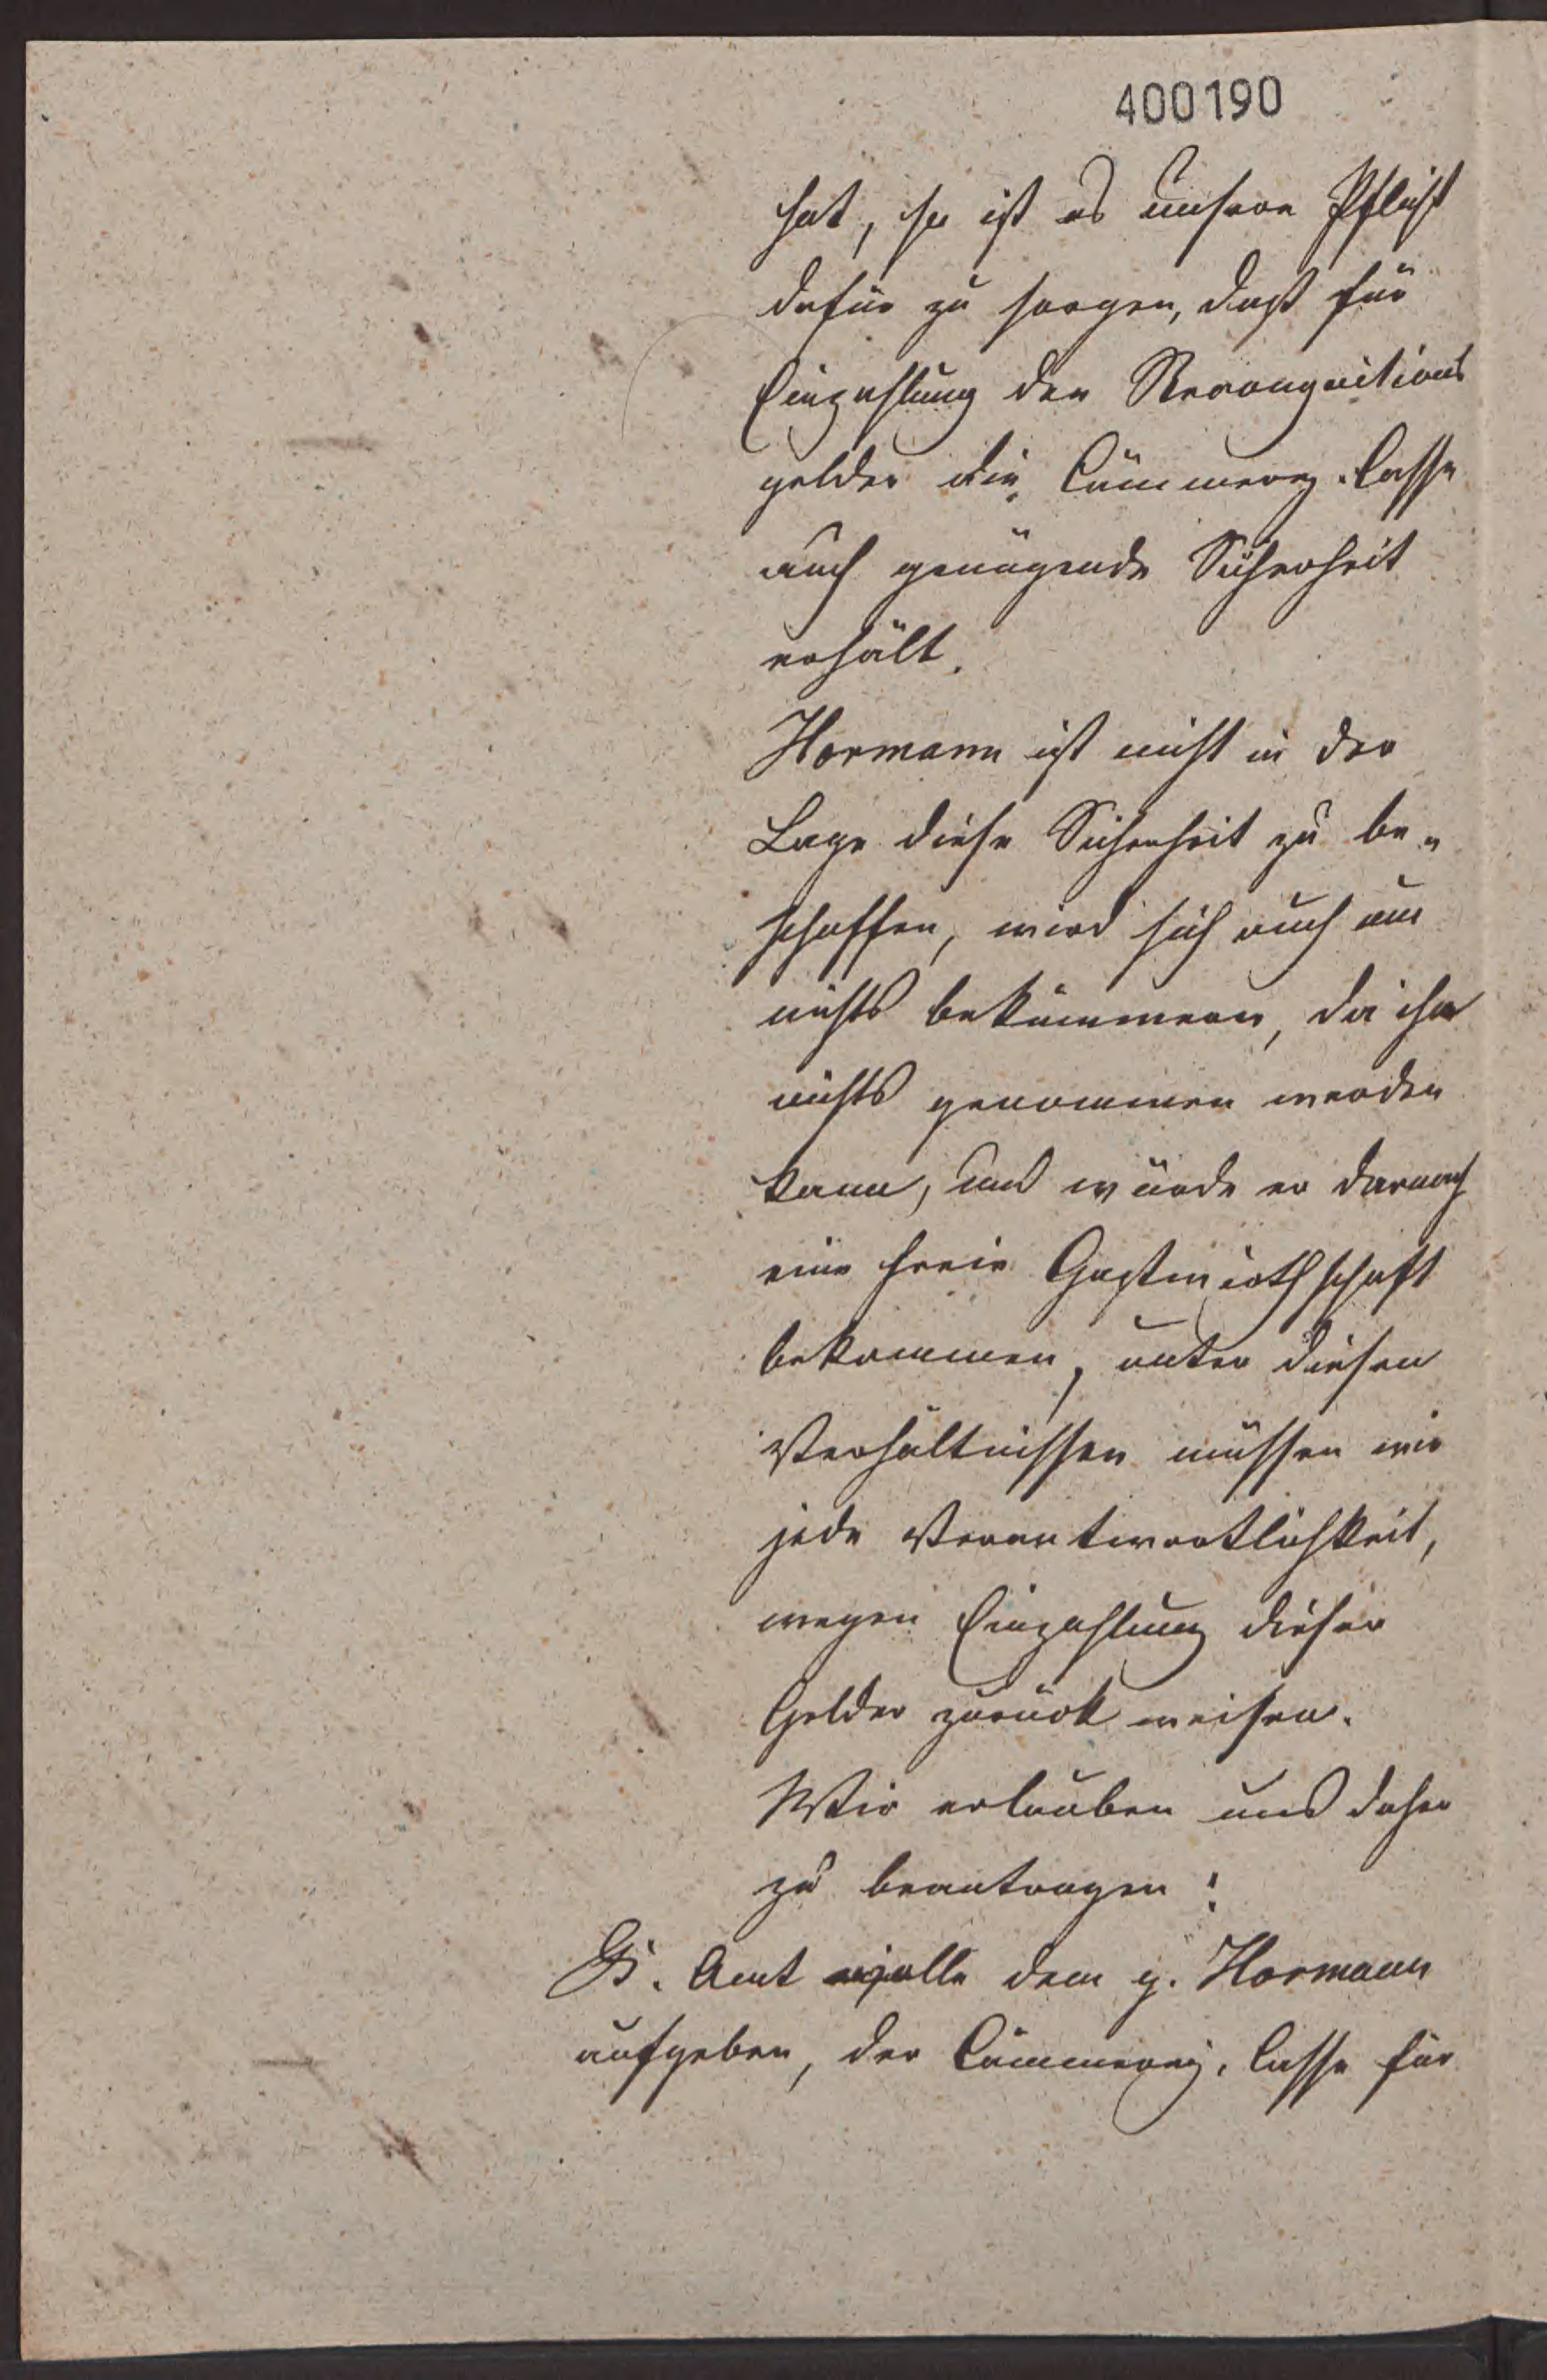 400190
hat, so ist es unsere Pflicht
dafür zu sorgen, daß für
Einzahlung der Recongnitions
gelder die Cämmerey-Casse
auch genügende Sicherheit
erhält.
Hormann ist nicht in der
Lage diese Sicherheit zu be-
schaffen, wird sich auch um
nichts bekümmern, da ihm
nichts genommen werden
kann, und würde er darnach
eine freie Gastwirthschaft
bekommen, unter diesen
Verhältnissen müssen wir
jede Verantwortlichkeit,
wegen Einzahlung dieser
Gelder zurück weisen.
Wir erlauben uns daher
zu beantragen:
Amt wolle dem p. Hormann
aufgeben, der Cämmerey-Casse für